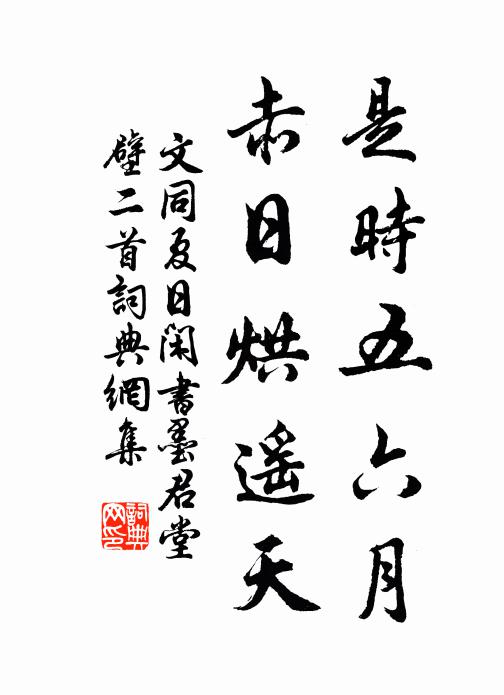 是時五六月
赤日烘遥天
文同夏日閑書墨君堂
壁二首詞典網集
詞典
网印